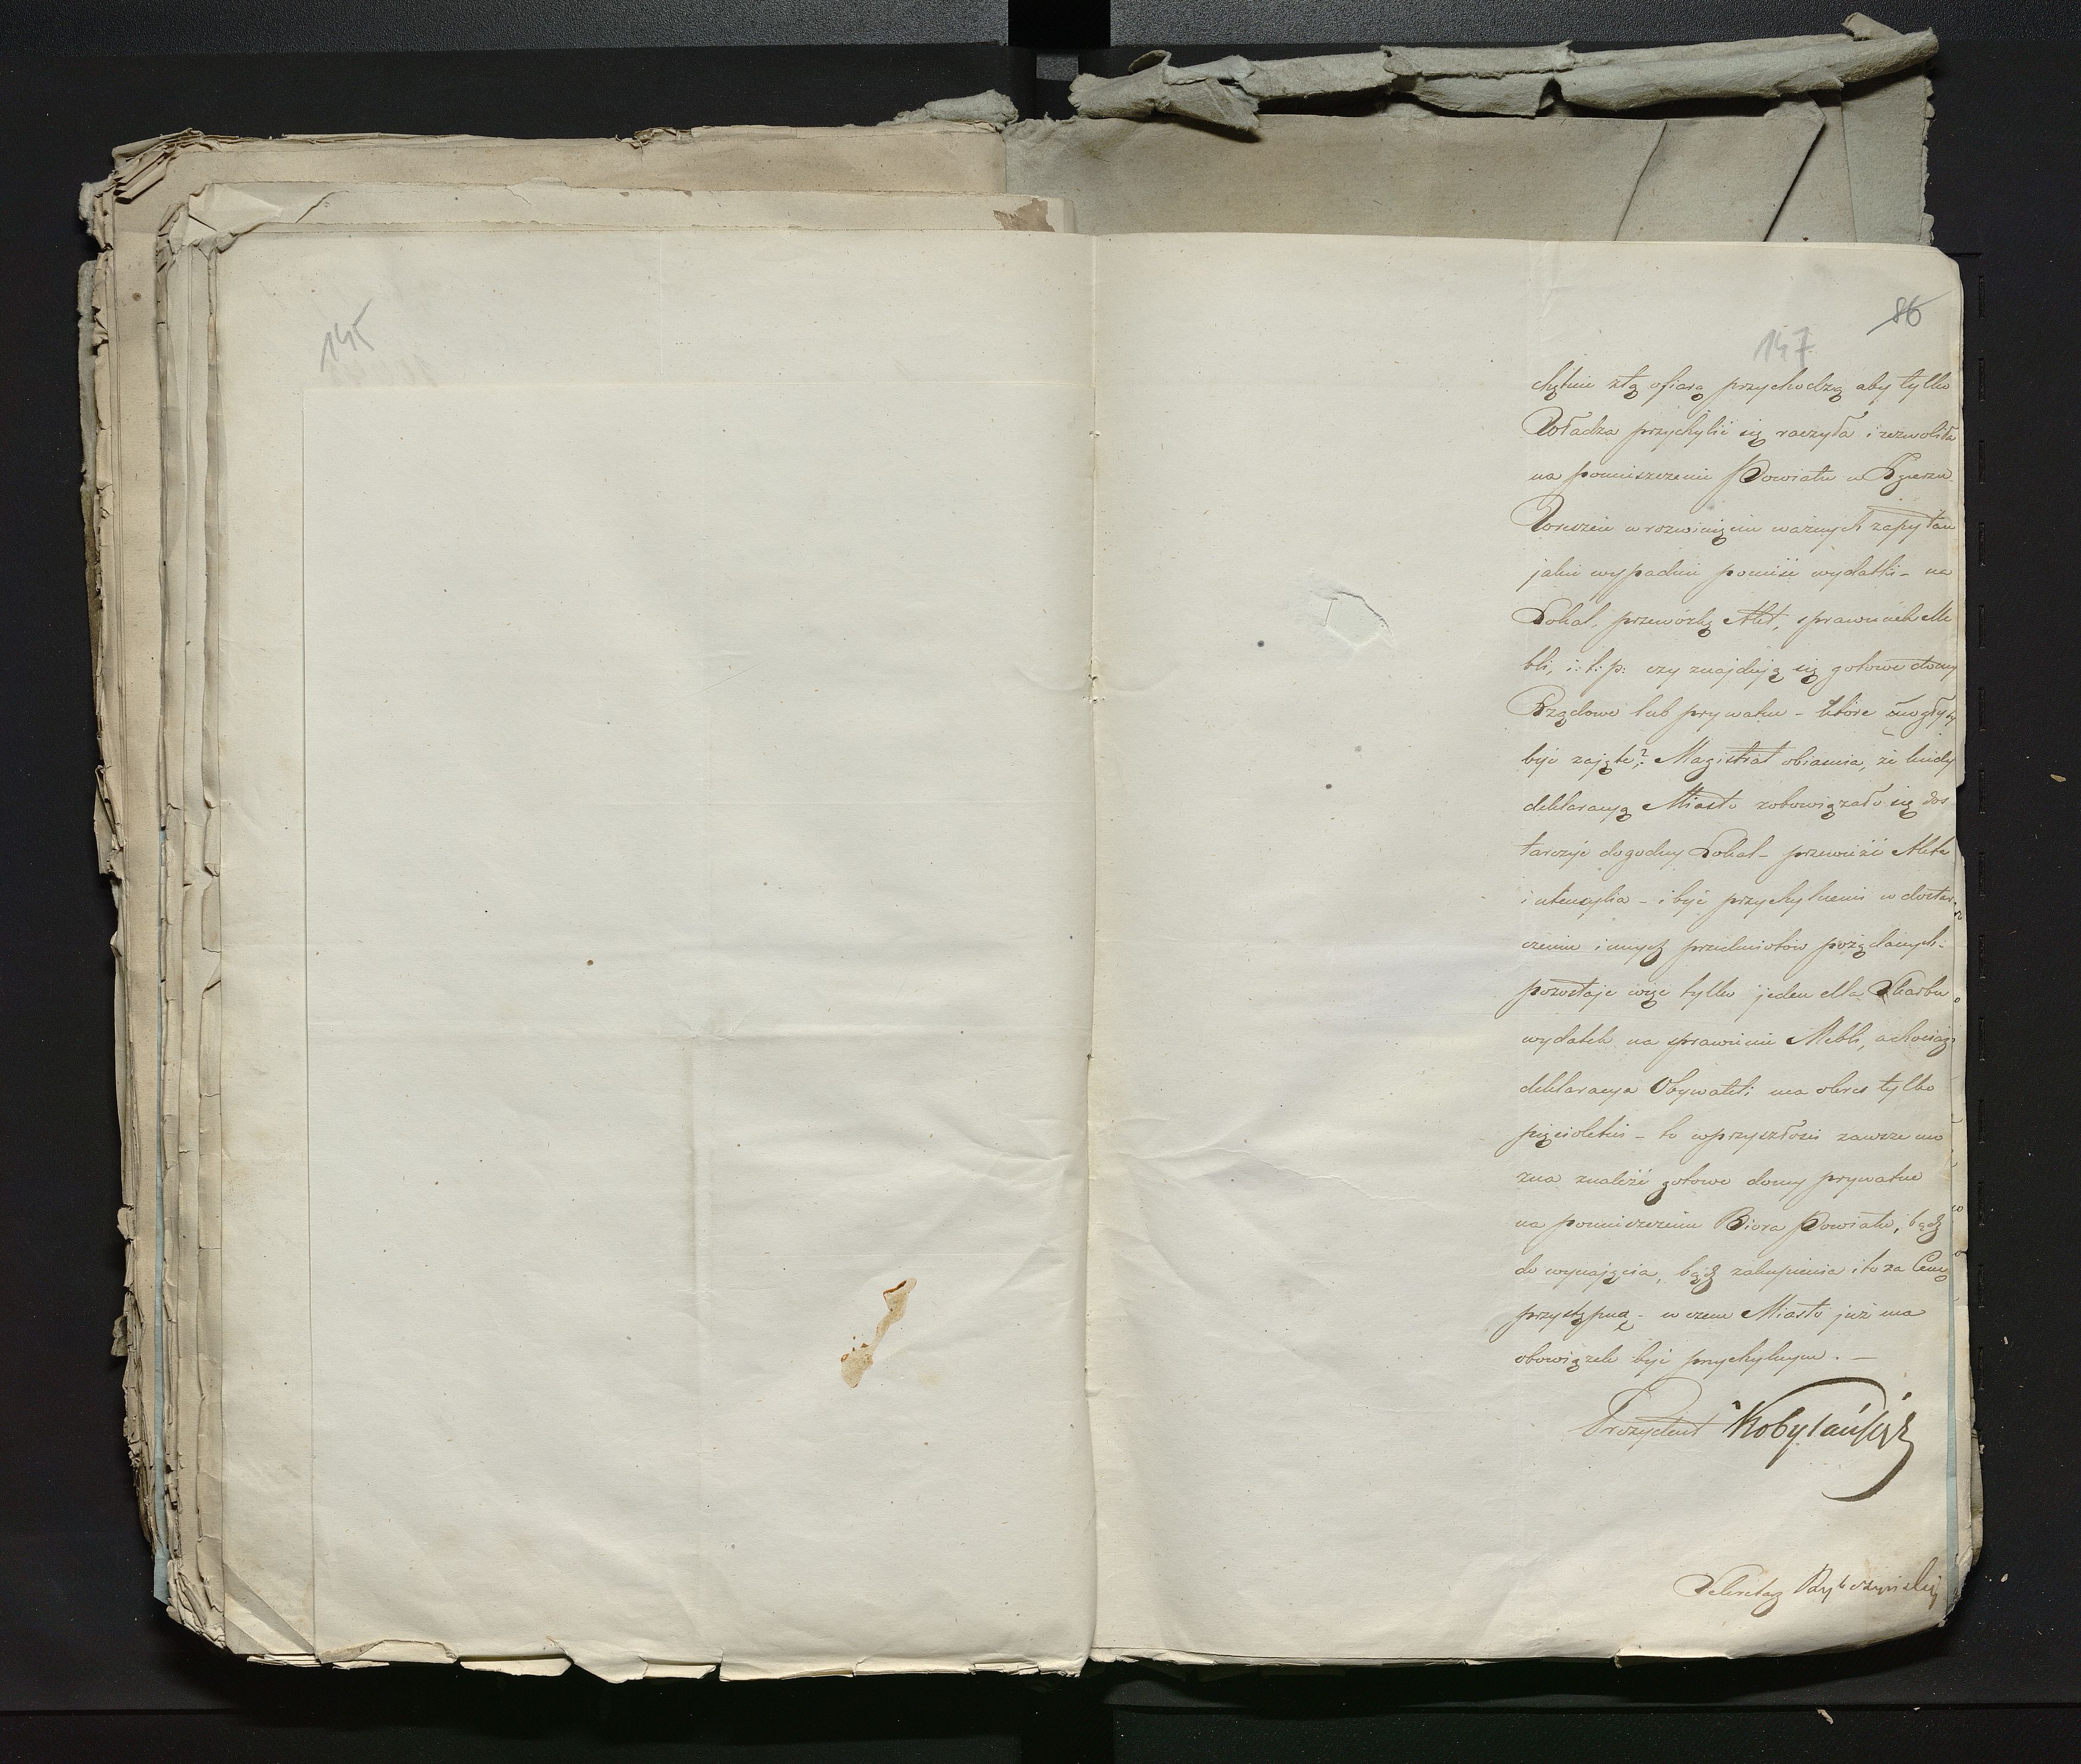 145
86
147
chętnie z tą ofiarą przychodzą aby tylko
Władza przychylić się raczyła i zezwoliła
na pomieszczenie Powiatu w Zgierzu.
Wreszcie w rozwinięciu ważnych zapytań
jakie wypadnie ponieść wydatki – na
Lokal, przewózkę Akt, sprawunek Me
bli, i: t: p: czy znajdują się gotowe domy
Rządowe lub prywatne – które mogłyby
być zajęte? Magistrat obiaśnia, że kiedy
deklaracyą Miasto zobowiązało się dos
tarczyć dogodny Lokal – przewieźć Akta
i utensylia – i być przychylnemi w dostar-
czeniu innych przedmiotów pożądanych.
pozostaje więc tylko jeden dla Skarbu
wydatek na sprawienie Mebli, a chociaż
deklaracya Obywateli ma okres tylko
pięcioletni – to w przyszłości zawsze mo
żna znaleźć gotowe domy prywatne
na pomieszczenie Biora Powiatu, bądź
do wynajęcia, bądź zakupienia i to za Cenę
przystępną – w czem Miasto już ma
obowiązek być przychylnym. –
Prezydent Kobyłański
Sekretarz Rybczyński